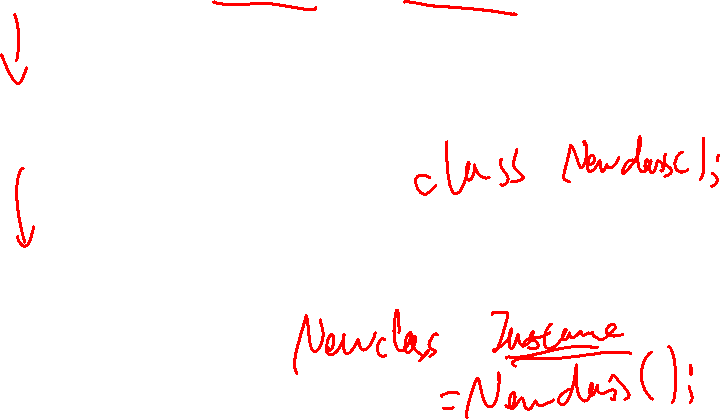 class Newclass();
Newclass Instance
=Newclass();